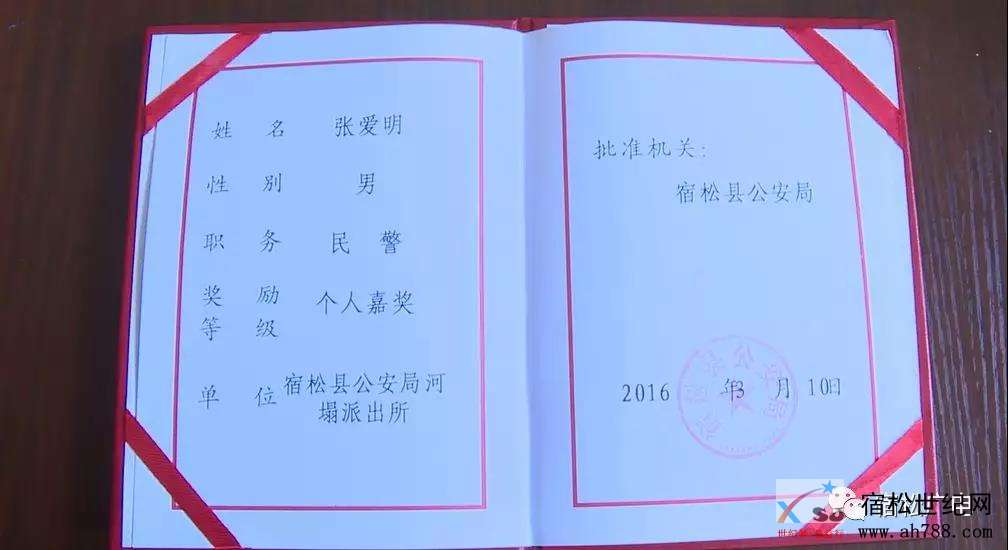 姓 名 张爱明
性 别 男
职 务 民 警
奖 励
等 级 个人嘉奖
单 位 宿松县公安局河
塌派出所
批准机关:
宿松县公安局
2016 年3 月 10日
宿松世纪网
www.ah788.com